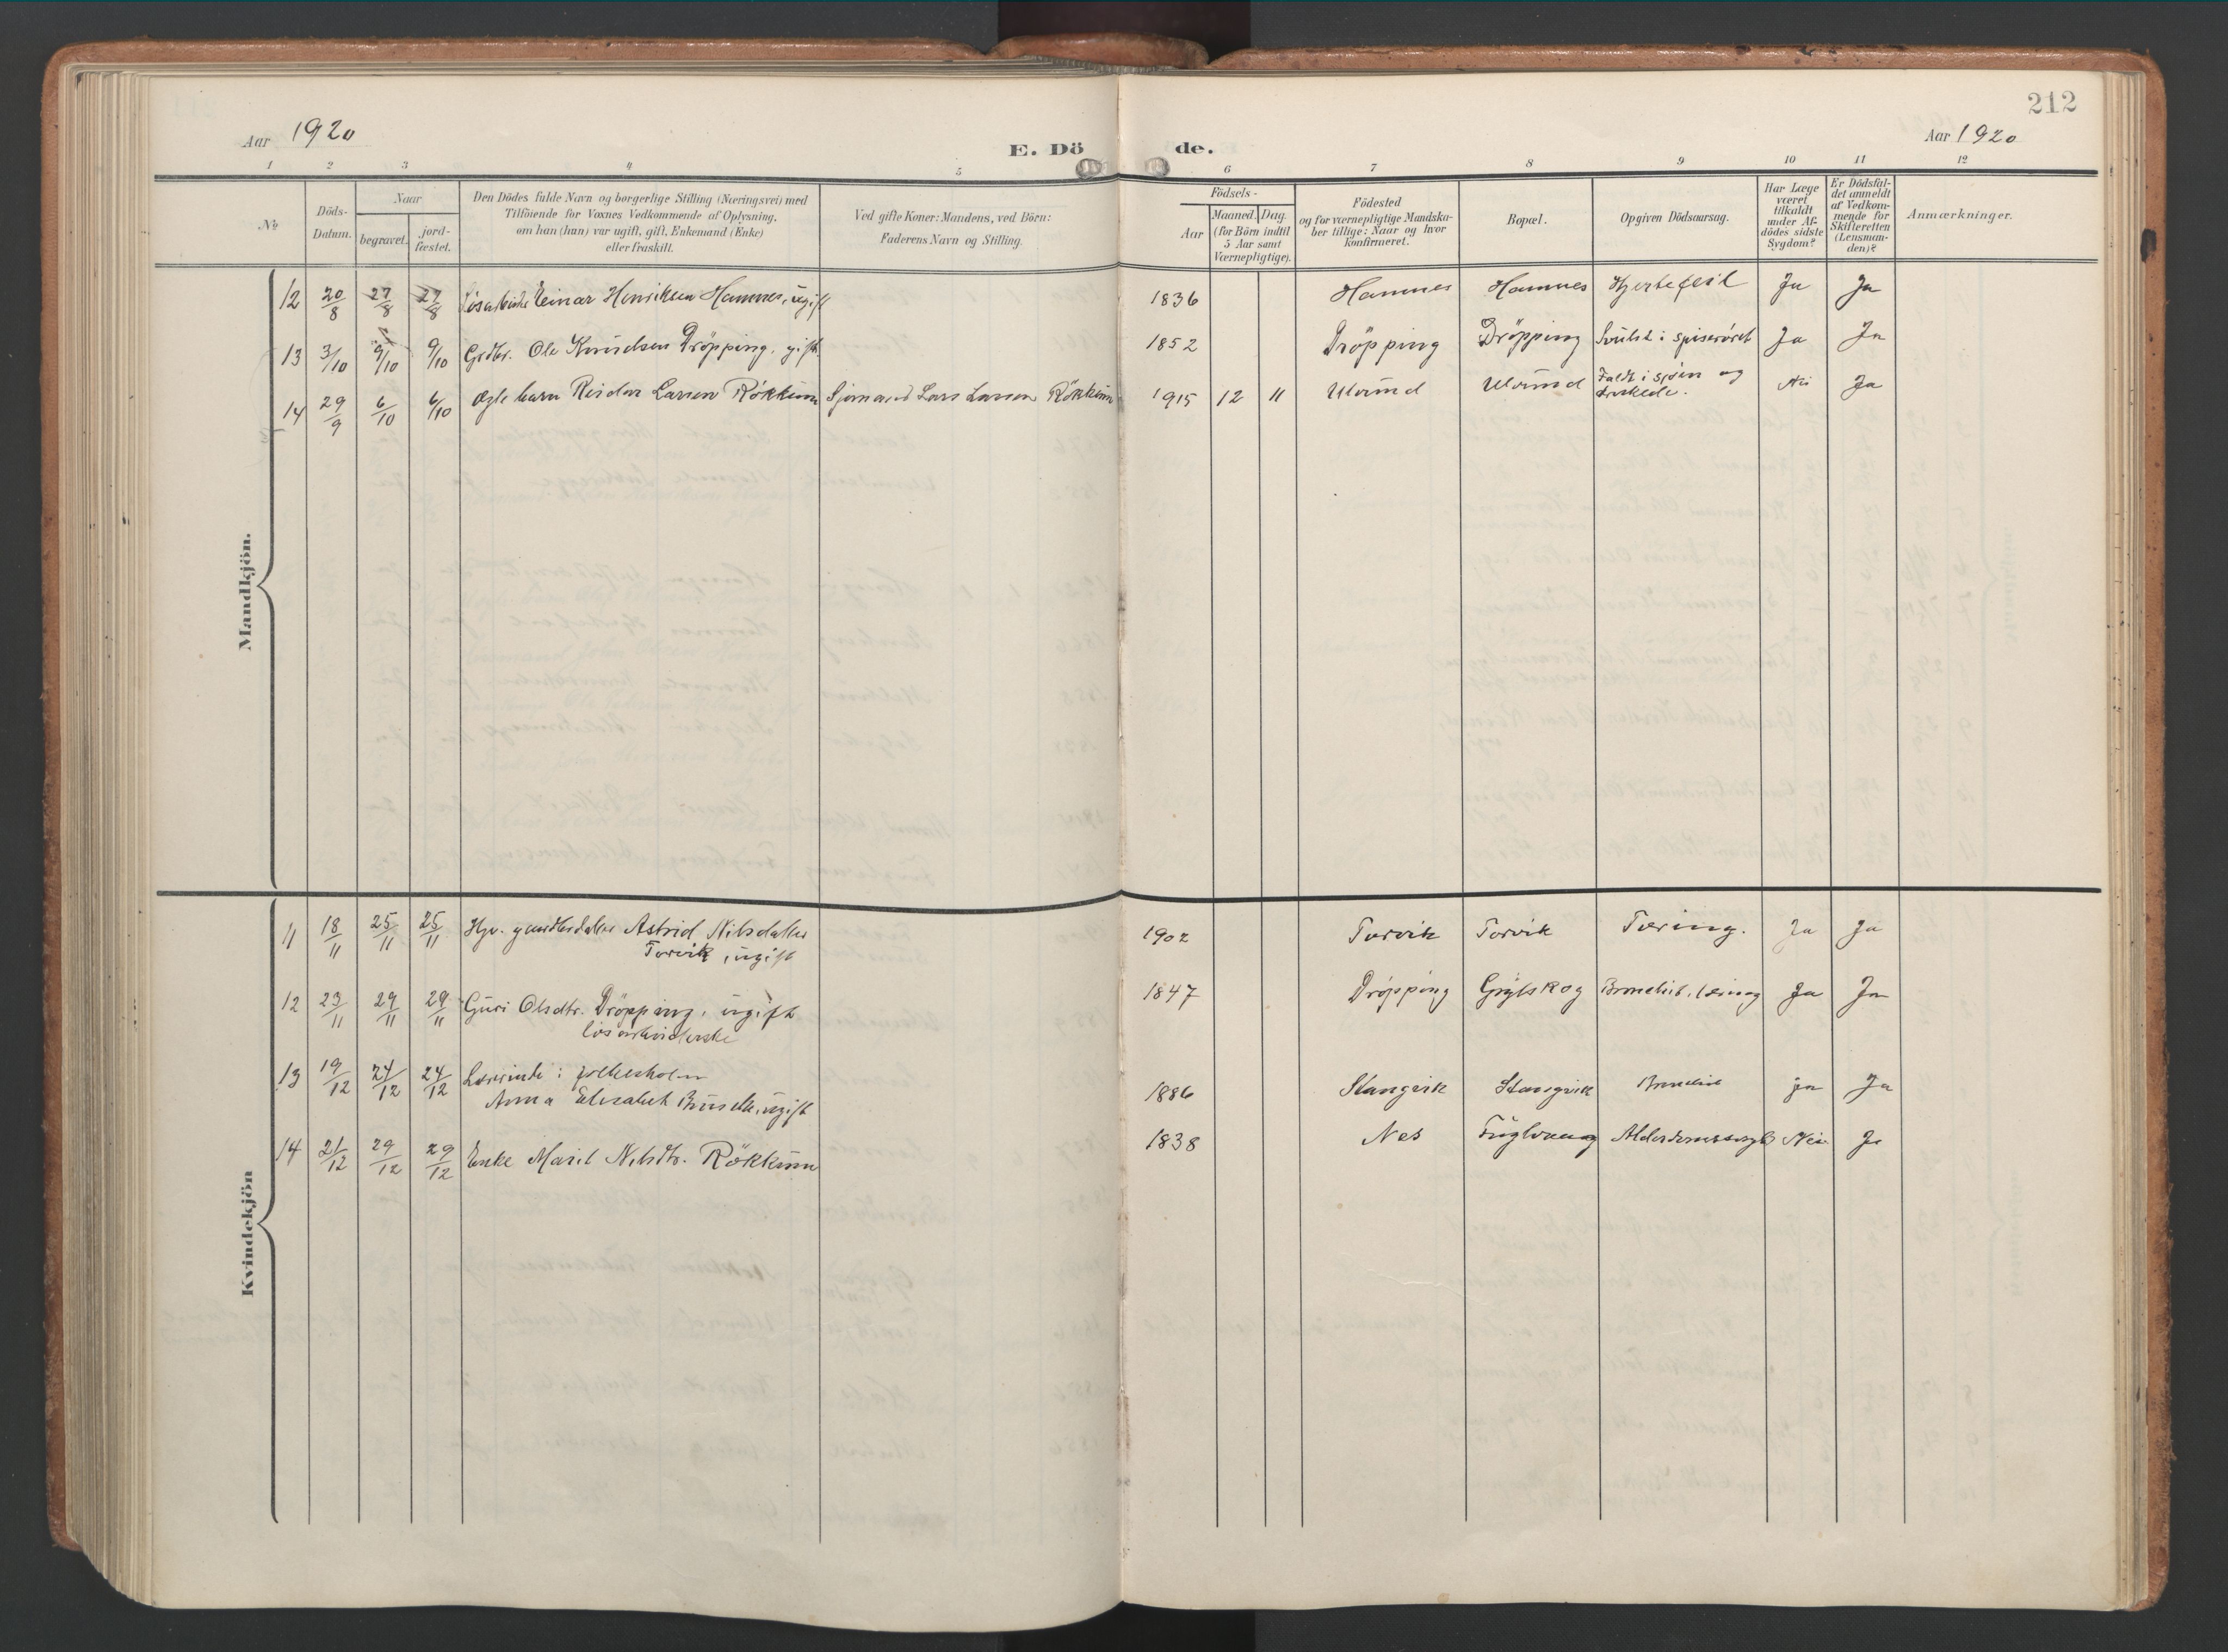 212
Aar 1920
E. Dö de.
Aar 1920
1 2 3 4 5 6 7 8 9 10 11 12
No
Döds-
Datum.
Naar
begravet.
jord-
fæstet.
Den Dödes fulde Navn og borgerlige Stilling (Næringsvei) med
Tilföiende for Voxnes Vedkommende af Oplysning.
om han (hun) var ugift, gift, Enkemand (Enke)
eller fraskilt.
Ved gifte Koner: Mandens, ved Börn:
Faderens Navn og Stilling.
Födsels-
Aar
Maaned. Dag.
(for Börn indtil
5 Aar samt
Værnepligtige).
Födested
og for værnepligtige Mandska-
ber tillige: Naar og hvor
konfirmeret.
Bopæl.
Opgiven Dödsaarsag.
Har Læge
været
tilkaldt
under Af-
dödes sidste
Sygdom?
Er Dödsfal-
det anmeldt
af Vedkom-
mende for
Skifteretten
(Lensman-
den)?
Anmærkninger.
Mandkjön.
12 20/8 27/8 27/8 Einar Henriksen Hamnes, ugift 1836 Hamnes Hamnes Hjertefeil Ja Ja
13 3/10 9/10 9/10 Grdbr. Ole Knudsen Dröpping, gift 1852 Dröpping Dröpping Svulst i spiserøret Ja Ja
14 29/9 6/10 6/10 Ægte barn Reidar Larsen Rökkum Sjömand Lars Larsen Rökkum 1915 12 11 Ulvund Ulvund Faldt i sjöen og
druknede. Nei Ja
Kvindekjön
11 18/11 25/11 25/11 Astrid Nilsdatter
Torvik, ugift 1902 Torvik Torvik Tæring. Ja Ja
12 23/11 29/11 29/11 Guri Olsdtr. Dröpping, ugift
lösarbeiderske 1847 Dröpping Grytskog Ja Ja
13 19/12 24/12 24/12 Lærerinde i folkeskolen
Anna Elisabet ugift 1886 Stangvik Stangvik ja Ja
14 21/12 29/12 29/12 Enke Marit Nilsdtr. Rökkum 1838 Nes Fuglvaag Nei Ja